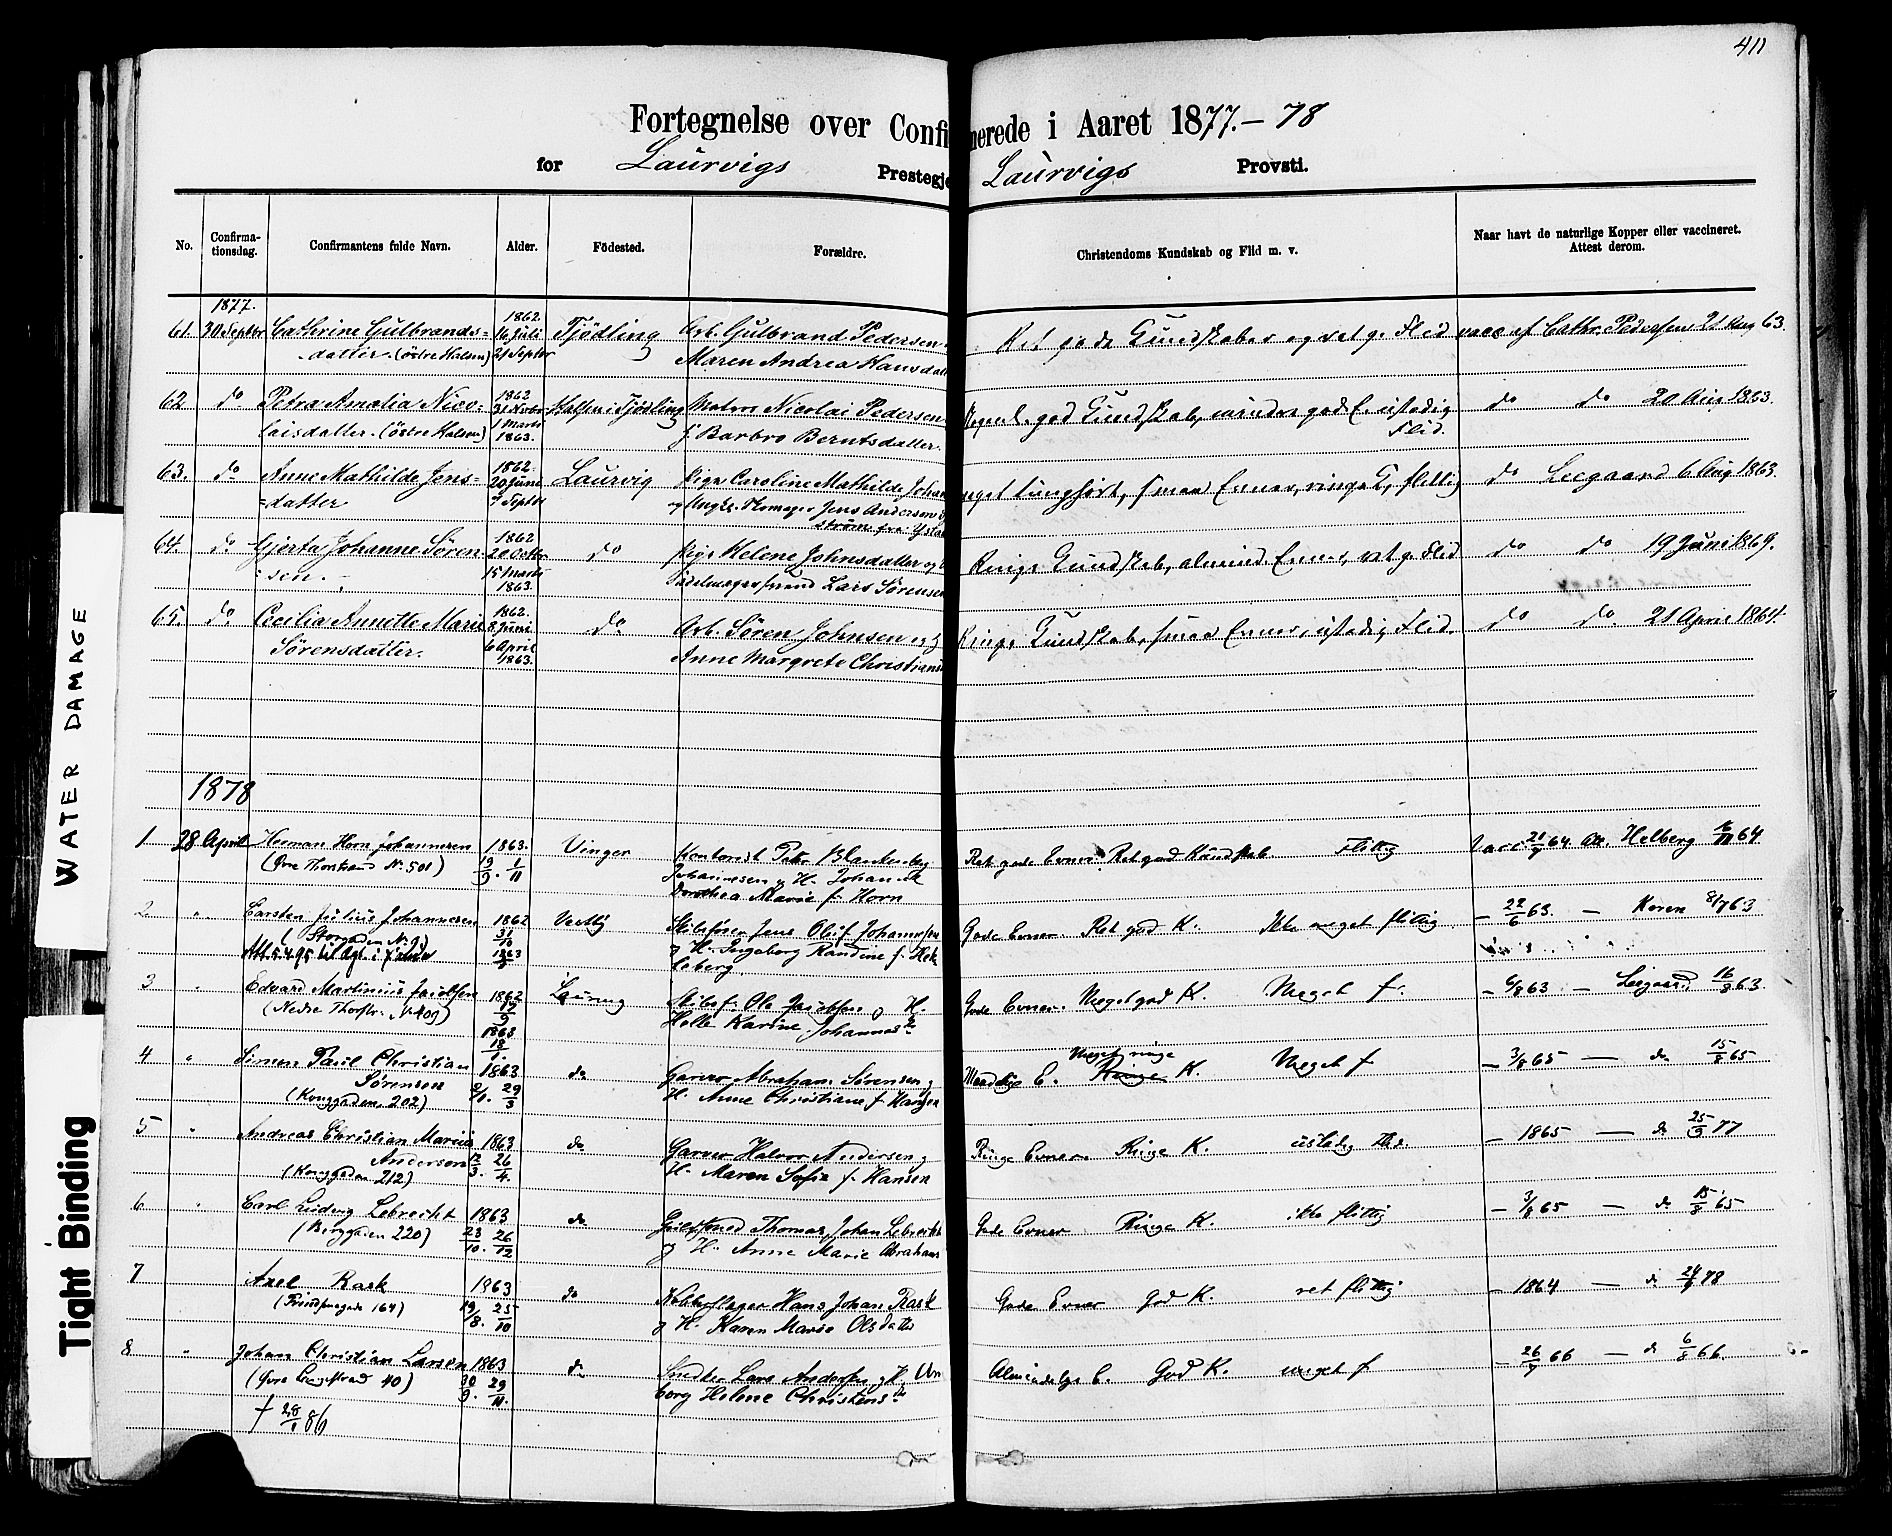 411
Fortegnelse over Confi nerede i Aaret 1877.-78
for Laurvigs Prestegje Laurvigs Provsti.
No. Confirma- tionsdag. Confirmantens fulde Navn. Alder. Födested. Forældre. Christendoms Kundskab og Flid m. v. Naar havt de naturlige Kopper eller vaccineret. Attest derom.
1877. 1862
61. 30 Septbr Cathrine Gulbrands= 16 Juli Tjödling Arb. Gulbrand Pedersen Ret gode Kundskaber og ret g. Flid vacc af Cathr. Pedersen 21 Aug 63.
datter. (östre Halsen) 21 Septbr Maren Andrea Hansdatt
1862
62 do Petra Amalia Nico- 31 Halsen i Tjödling Matros Nicolai Pedersen god Kundskab, mindre gode E. ustadig do do 20 Aug 1863.
laisdatter. (östre Halsen) 1 Marts 1863. Barbro Berntsdatter. Flid.
1862.
63. do Anne Mathilde Jens= 20 Juni Laurvig Pige Caroline Mathilde Johan meget tunghört, smaa Evner, ringe K, flittig do Leegaard 6 Aug. 1863.
=datter Septbr og Ungk. Jens Anderson
ström fra Ystad
1862
64. do Gjerta Johanne Sören- 20 Octbr. do Pige Helene Johnsdatter og Ringe Kundskab, almind. Evner, ret g. Flid do do 19 Juni 1869.
sen. 15 Marts 1863. Sadelmagersvend Lars Sörensen
1862.
65. do Cecilia Annette Marie 8 Juni do Arb. Sören Johnsen og Ringe Kundskab, smaa Evner, ustadig Flid. do do. 21 April 1864.
Sörensdatter. 6 April 1863. Anne Margrete Christians
1878
1 28 April Herman Horn Johannesen 1863. Vinger Kontorist Petr Blankenborg Ret gode Evner. Ret god Kundskab. Flittig Vacc 64 Helberg 64
(Øvre Thorstrand Nr. 501) 19/9. 1/11 Johannesen og H. Johanne
Dorothea Marie f. Horn
2 " Carsten Julius Johannesen 1862 Skibsfører Jens Oluf Johannesen Gode Evner Ret god K. Ikke meget flittig - 22/6 63. - Koren 8/7 63
(Storgaden Nr. ) 31/10 og H. Ingeborg Randine f. Hek
1863 leberg
3 " Edvard Martinius Jacobsen 1862 Laurvig Skibsf. Ole Jacobsen og H. Gode Evner. Meget god K. Meget f. - 6/8 63 - Leegaard 16/8 63.
(Nedre Thorstr. Nr 409) 17/9 Helle Karine Johannesdr
1863
4 " Simon Paul Christian 1863 do Garver Abraham Sørensen og Maadelig E. Meget ringe Ringe K. Meget f - 3/8 65 - do 15/8 65
Sørensen
(Konggaden. 202) 29/3 H. Anne Christiane f. Hansen
5 " Andreas Christian Marius 1863 do Garver Halvor Andersen og Ringe Evner. Ringe K. ustadig Flid. - 1865 - do 25/9 77
Andersen 12/3. 26/4. H. Maren Sofie f. Hansen
(Konggaden 212)
6 " Carl Ludvig Lebrecht 1863 do Guldsmed Thomas Johan Lebrecht Gode Evner Ringe K. ikke flittig - 3/8 65 - do 15/8 65
(Berggaden 220) 23/10. 26/12 og H. Anne Marie Abrahams
7 Axel Rask 1863 do Kobberslager Hans Johan Rask Gode Evner God K. ret flittig - 1864 - do 78
164) 19/8. 25/10 og H. Karen Marie Olsdatter
8 " Johan Christian Larsen 1863 do Lars Andersen og H. Almindelige E. God K. meget f - 66 - do 6/8 66.
(Øvre Langestrand 40) 30/9. 29/11. borg Helene Christensdr
† 28/1 86
WATER DAMAGE
Tight Binding